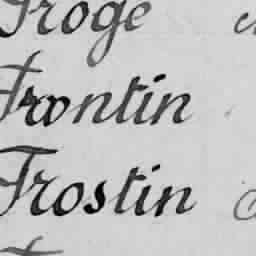 Froge
Frontin
Frostin